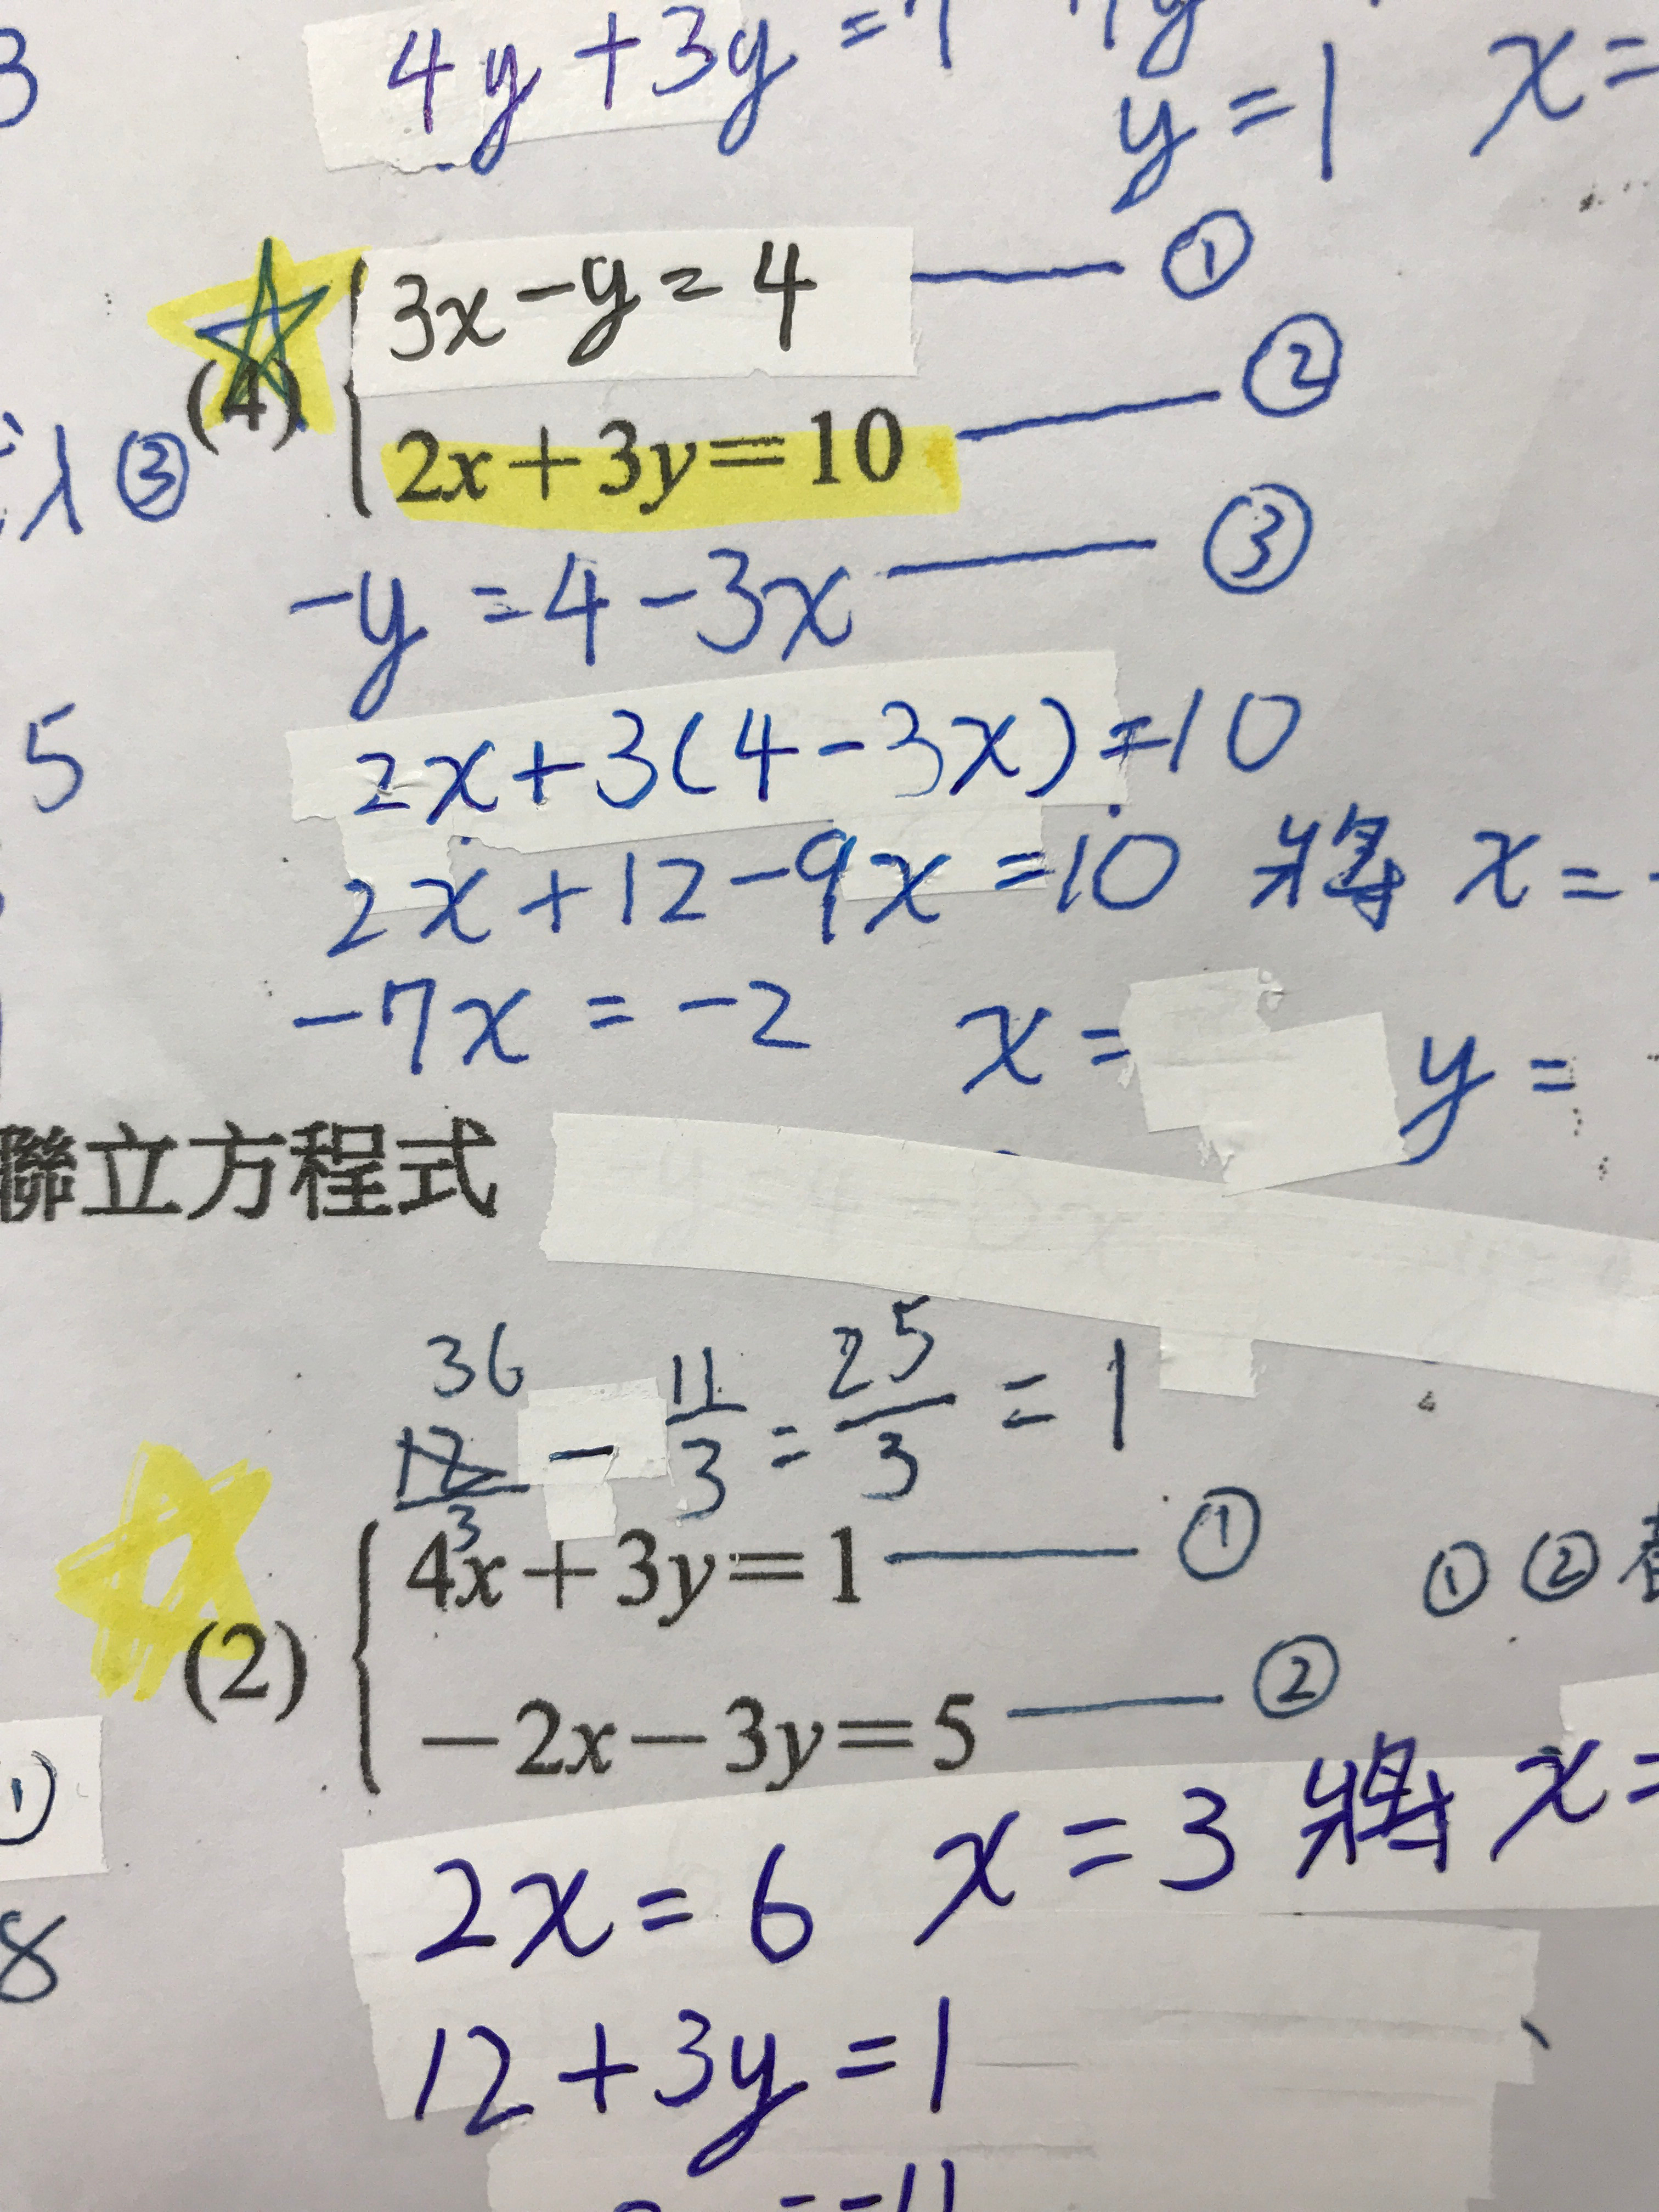 3
4y+3y=7
y=1 x=
(4) 3x-y=4 ①
2x+3y=10 ②
入③
-y=4-3x ③
5
2x+3(4-3x)=10
2x+12-9x=10 將 x=-
-7x=-2 x= y=-
聯立方程式
36
12/3 - 11/3 = 25/3 = 1
(2) 4x+3y=1 ①
①②
-2x-3y=5 ②
①
2x=6 x=3 將 x=
8
12+3y=1